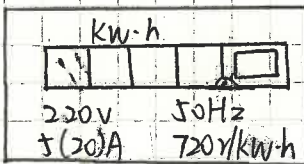 kw·h
220V 50Hz
5(20)A 720r/kw·h